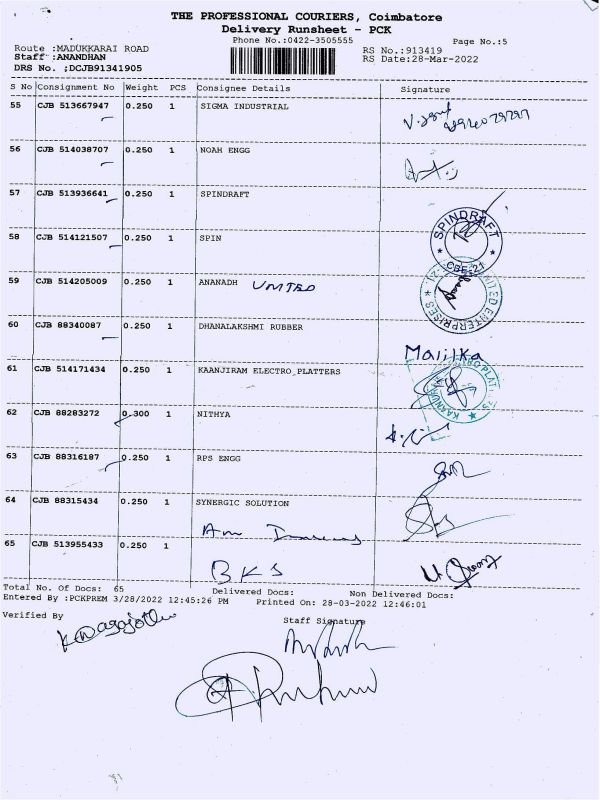 THE PROFESSIONAL COURIERS, Coimbatore
Delivery Runsheet - PCK
Phone No.:0422-3505555 Page No.:5
Route :MADUKKARAI ROAD RS No.:913419
Staff :ANANDHAN RS Date:28-Mar-2022
DRS No. ;DCJB91341905
S No Consignment No Weight PCS Consignee Details Signature
55 CJB 513667947 0.250 1 SIGMA INDUSTRIAL
56 CJB 514038707 0.250 1 NOAH ENGG
57 CJB 513936641 0.250 1 SPINDRAFT
SPINDRAFT
58 CJB 514121507 0.250 1 SPIN
CBE-21
59 CJB 514205009 0.250 1 ANANADH UNITED
UNITED ENTERPRISES
60 CJB 88340087 0.250 1 DHANALAKSHMI RUBBER
Malilka
61 CJB 514171434 0.250 1 KAANJIRAM ELECTRO_PLATTERS
62 CJB 88283272 0.300 1 NITHYA
63 CJB 88316187 0.250 1 RPS ENGG
64 CJB 88315434 0.250 1 SYNERGIC SOLUTION
65 CJB 513955433 0.250 1
BKS
Total No. Of Docs: 65 Delivered Docs: Non Delivered Docs:
Entered By :PCKPREM 3/28/2022 12:45:26 PM Printed On: 28-03-2022 12:46:01
Verified By Staff Signature